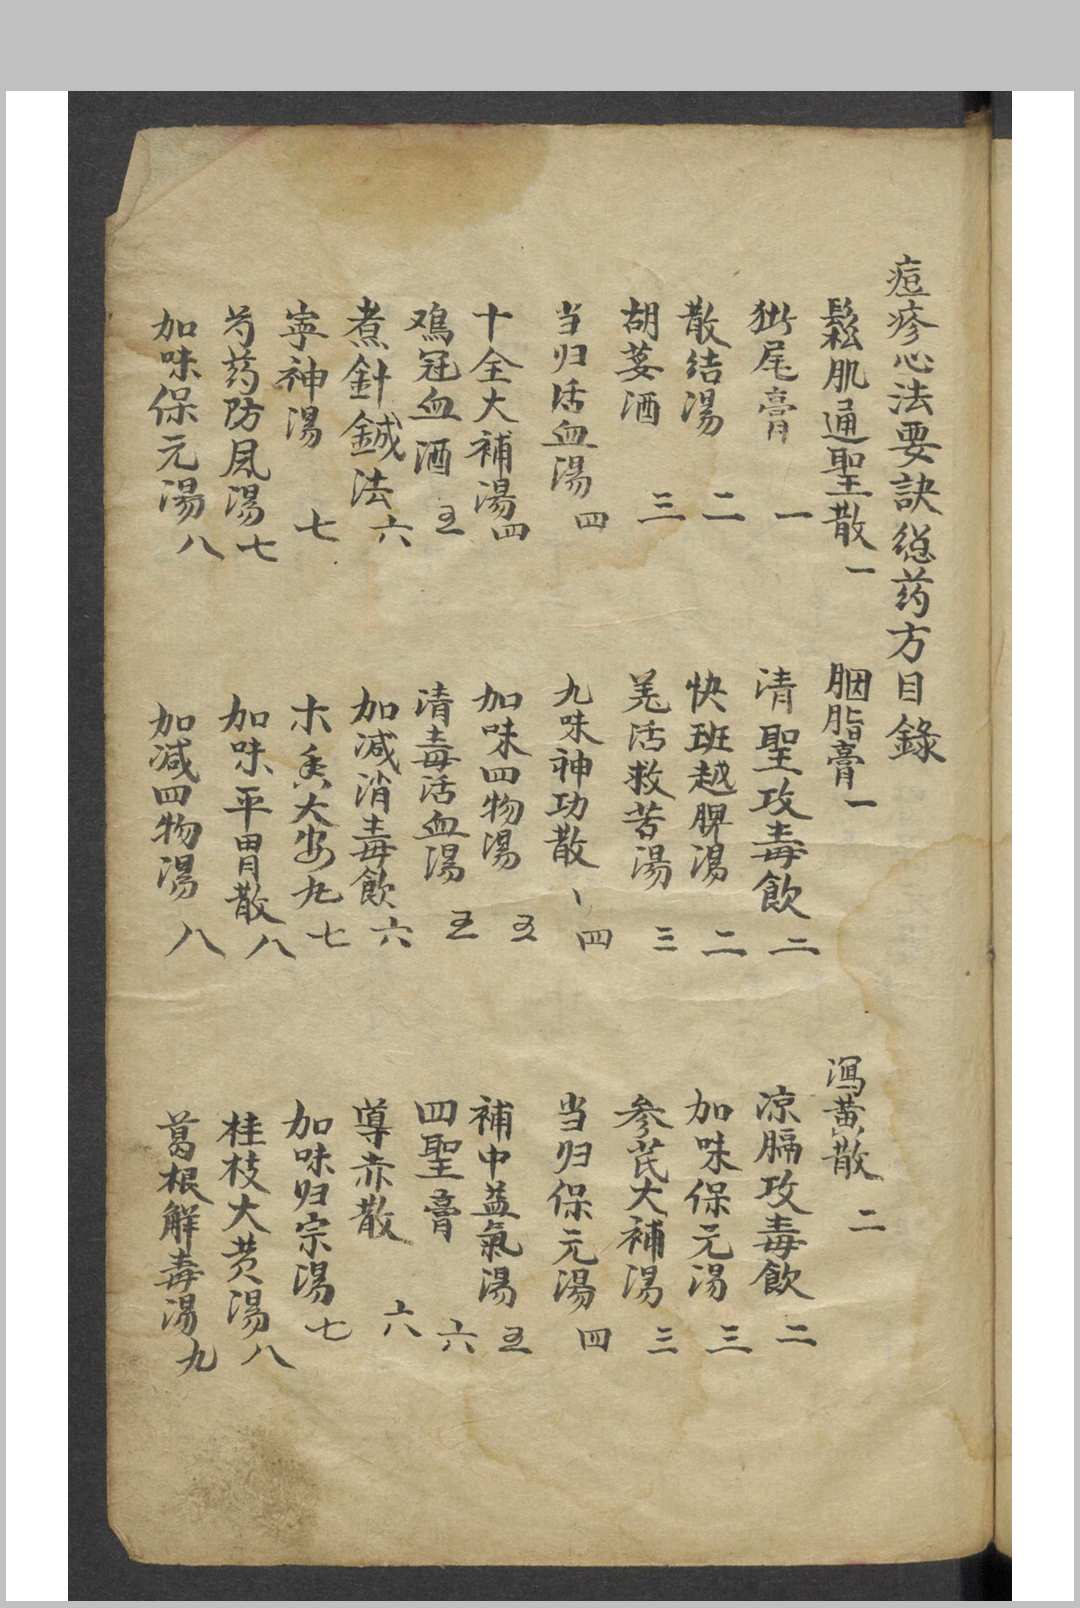 痘疹心法要訣總药方目錄
鬆肌通聖散一 胭脂膏一 瀉黄散二
猕尾膏一 清聖攻毒飲二 凉膈攻毒飲二
散结湯二 快班越脾湯二 加味保元湯三
胡荽酒三 羌活救苦湯三 参芪大補湯三
当归活血湯四 九味神功散四 当归保元湯四
十全大補湯四 加味四物湯五 補中益氣湯五
鸡冠血酒五 清毒活血湯五 四聖膏六
煮針鍼法六 加减消毒飲六 導赤散六
寧神湯七 木香大安丸七 加味归宗湯七
芍药防風湯七 加味平胃散八 桂枝大黄湯八
加味保元湯八 加减四物湯八 葛根解毒湯九